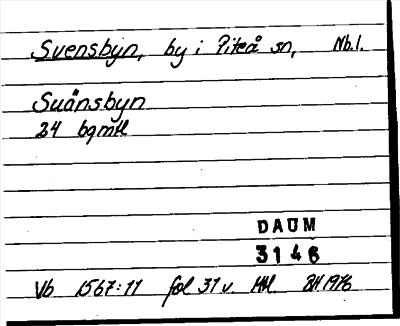 Svensbyn, by i Piteå sn, Nb.l.
Suånsbyn
24 bgmtl
DAUM
3146
Vb 1567:11 fol 31 v 1976